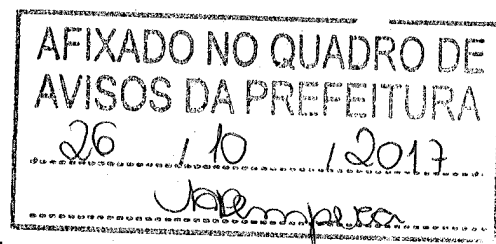 AFIXADO NO QUADRO DE
AVISOS DA PREFEITURA
26 / 10 / 2017